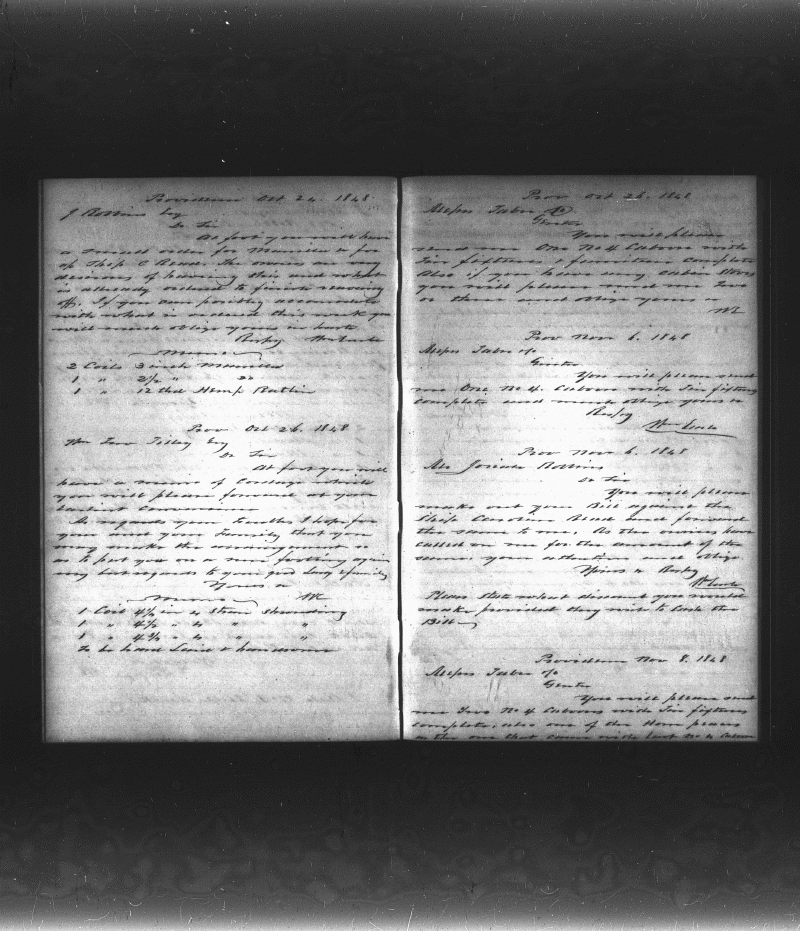 Providence Oct 24. 1848
J Robbins Esq
Dr Sir
At foot you will have
a small order for Manilla &c for
of Ship The owners are very
desirous of having this and what
is already ordered to finish
off. If you can possibly accomodate
with what is ordered this week you
will much oblige yours in haste
Respy
Memo
2 Coils 3 inch Manilla
1 " 2½ " Do
1 " 12 thd Hemp Ratlin
Prov Oct 26. 1848
Wm Tilley Esq
Dr Sir
At foot you will
have a memo of Cordage which
you will please forward at your
Earliest Convenience
As regards your Troubles I hope for
your and your family that you
may make the arrangement so
as to put you on a new footing again
my best regards to your good Lady & family
Yours &
Memo
1 Coil 4½ in 4 Stran
1 " 4½ " 4 " "
1 " 4¾ " 4 " "
to be hard Laid & handsome
Prov Oct 26. 1848
Messrs Taber & Co
Gents
You will please
send me One No 4 Caboose with
fixtures & furniture Complete
Also if you have any Cabin Stoves
you will please send me Two
or three and oblige yours &
Prov Nov 6. 1848
Messrs Taber & Co
Gents
You will please send
me One No 4. Caboose with
complete and much oblige yours &
Respy
Wm
Prov Nov 6. 1848
Mr Josiah Robbins
Dr Sir
You will please
make out your Bill against the
Ship Caroline and forward
the same to me. As the owners have
called on me for the amount of the
same your attention and oblige
Yours & Respy
Please state what discount you would
make provided they wish to cash the
Bill
Providence Nov 8. 1848
Messrs Taber & Co
Gents
You will please send
me Two No 4 Cabooses with
complete, also one of the
as the one that came with last No 4 Caboose